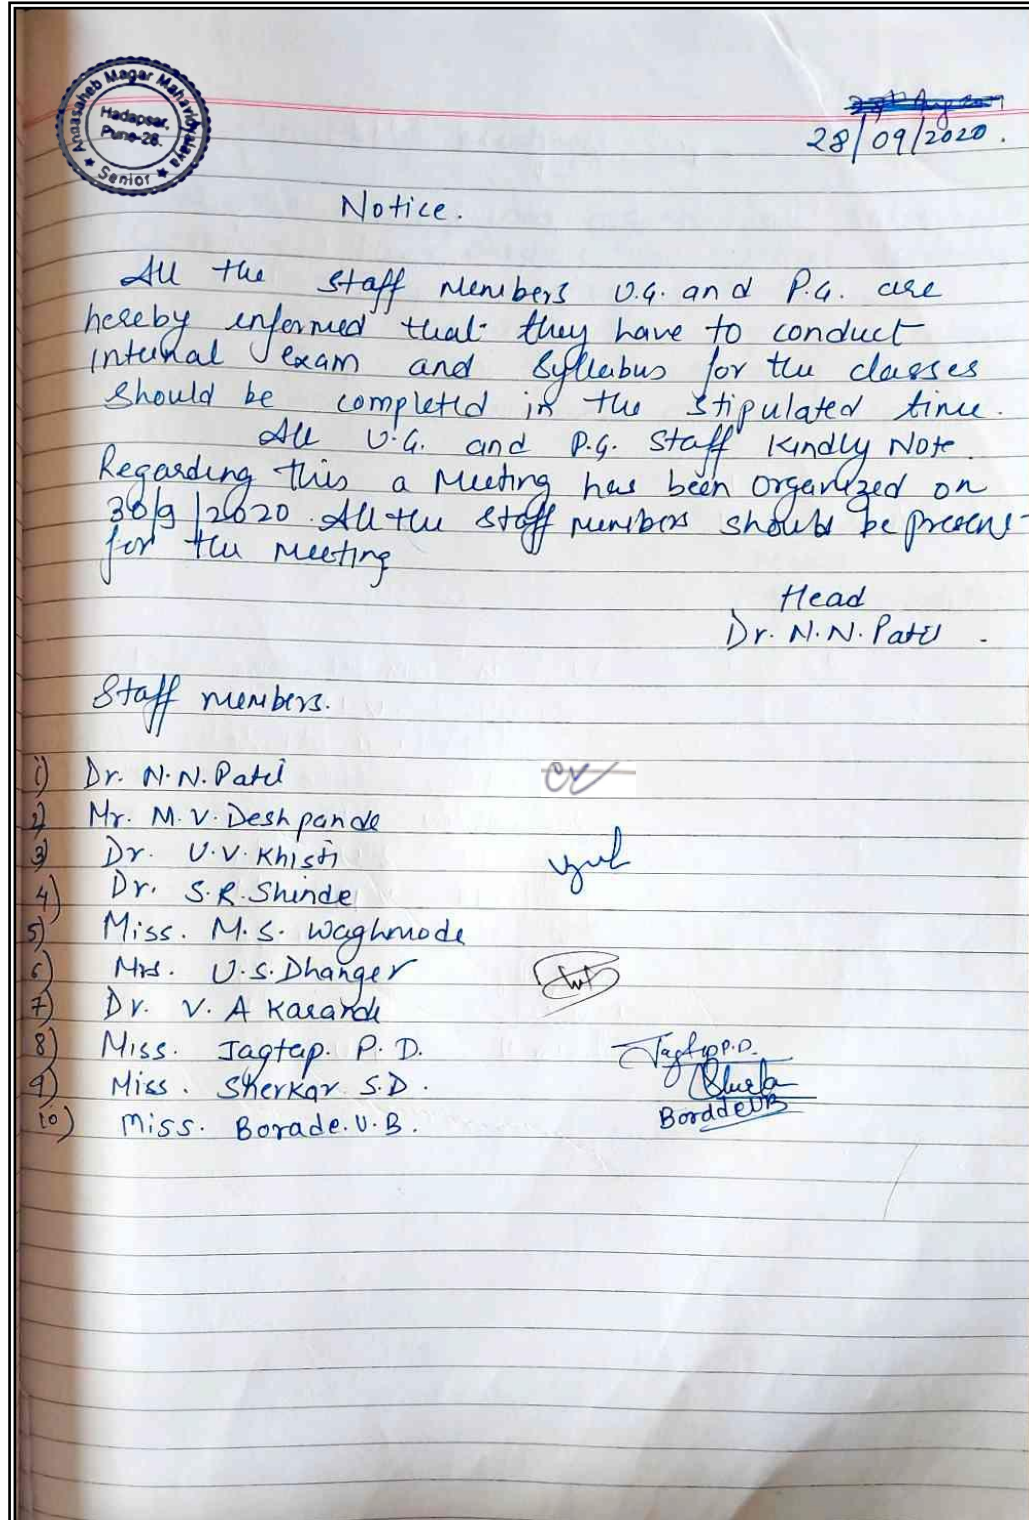 Annasaheb Magar Mahavidyalaya
Hadapsar,
Pune-28.
★ Senior ★
28/09/2020.
Notice.
All the staff members U.G. and P.G. are
hereby informed that they have to conduct
internal exam and syllabus for the classes
should be completed in the stipulated time.
All U.G. and P.G. staff kindly Note.
Regarding this a Meeting has been organized on
30/9/2020. All the staff members should be present
for the meeting
Head
Dr. N.N. Patil
Staff members.
1) Dr. N.N. Patil
2) Mr. M.V. Deshpande
3) Dr. U.V. Khisti
4) Dr. S.R. Shinde
5) Miss. M.S. Waghmode
6) Mrs. U.S. Dhanger
7) Dr. V. A Karande
8) Miss. Jagtap. P. D. Jagtap P.D.
9) Miss. Sherkar S.D.
10) Miss. Borade. U.B. Boradde UB